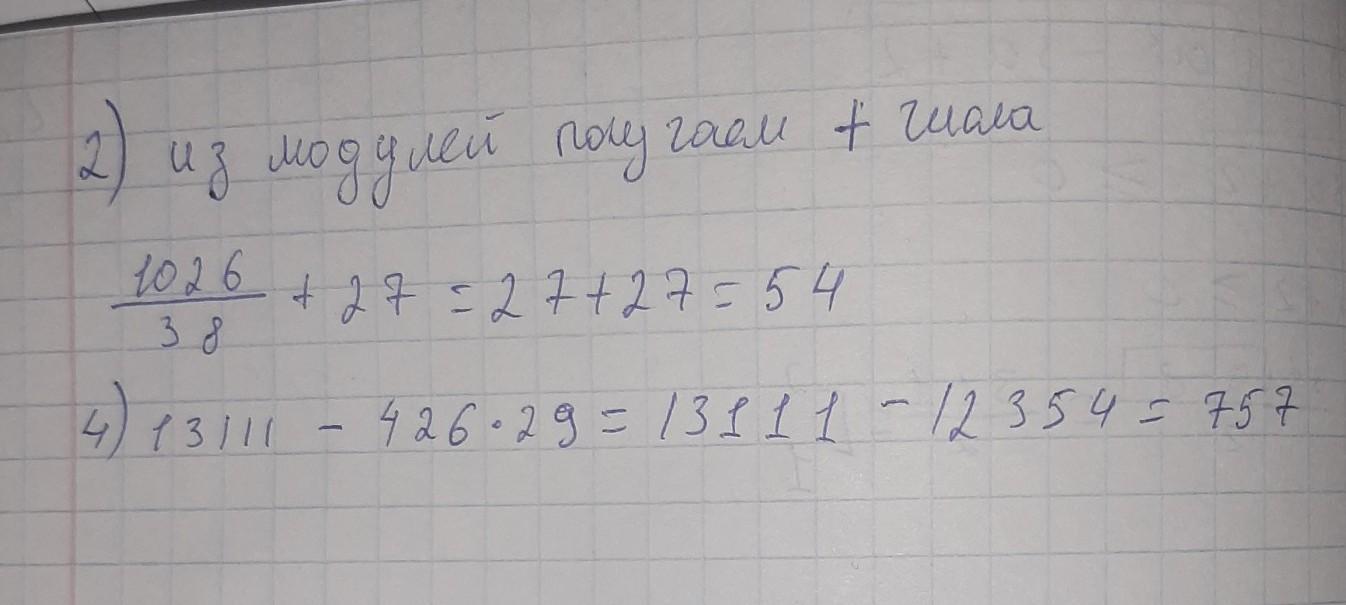 2) из модулей получаем + числа
1026/38 + 27 = 27 + 27 = 54
4) 13111 - 426 · 29 = 13111 - 12354 = 757